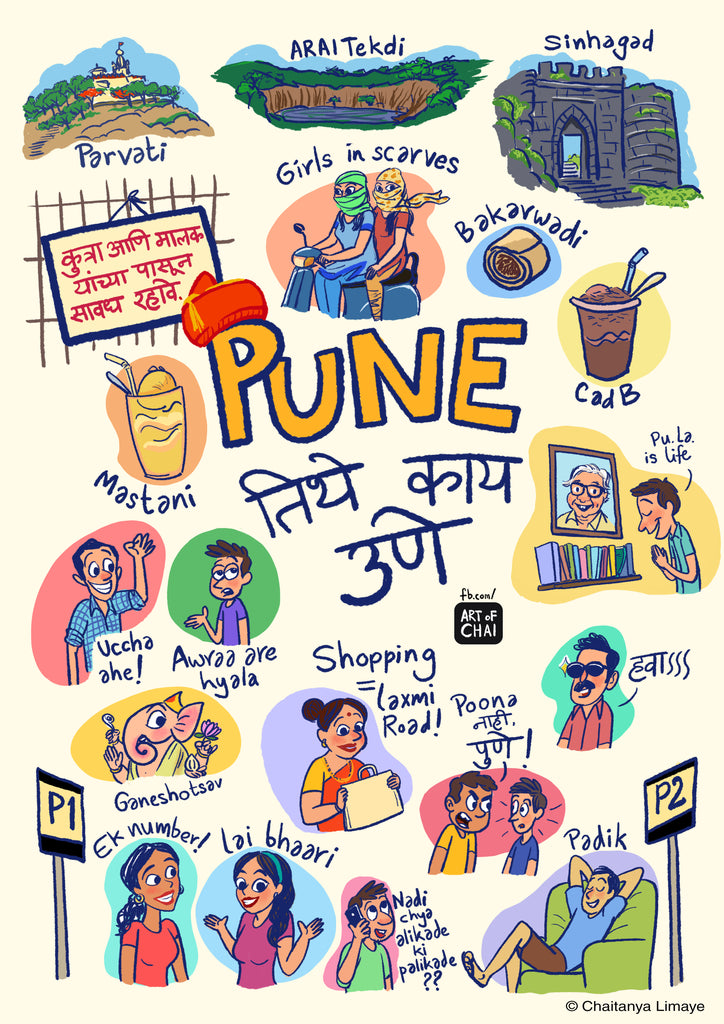 ARAI Tekdi
Sinhagad
Parvati
Girls in scarves
Bakarwadi
कुत्रा आणि मालक
यांच्या पासून
सावध रहवि.
PUNE
CadB
Mastani
तिथे काय
उणे
Pu.La.
is life
fb.com/
ART OF
CHAI
Uccha
ahe!
Awraa are
hyala
Shopping
= laxmi
Road!
Poona
नाही,
पुणे!
हवाऽऽऽ
Ganeshotsav
P1
P2
Ek number!
lai bhaari
Padik
Nadi
chya
alikade
ki
palikade
??
© Chaitanya Limaye